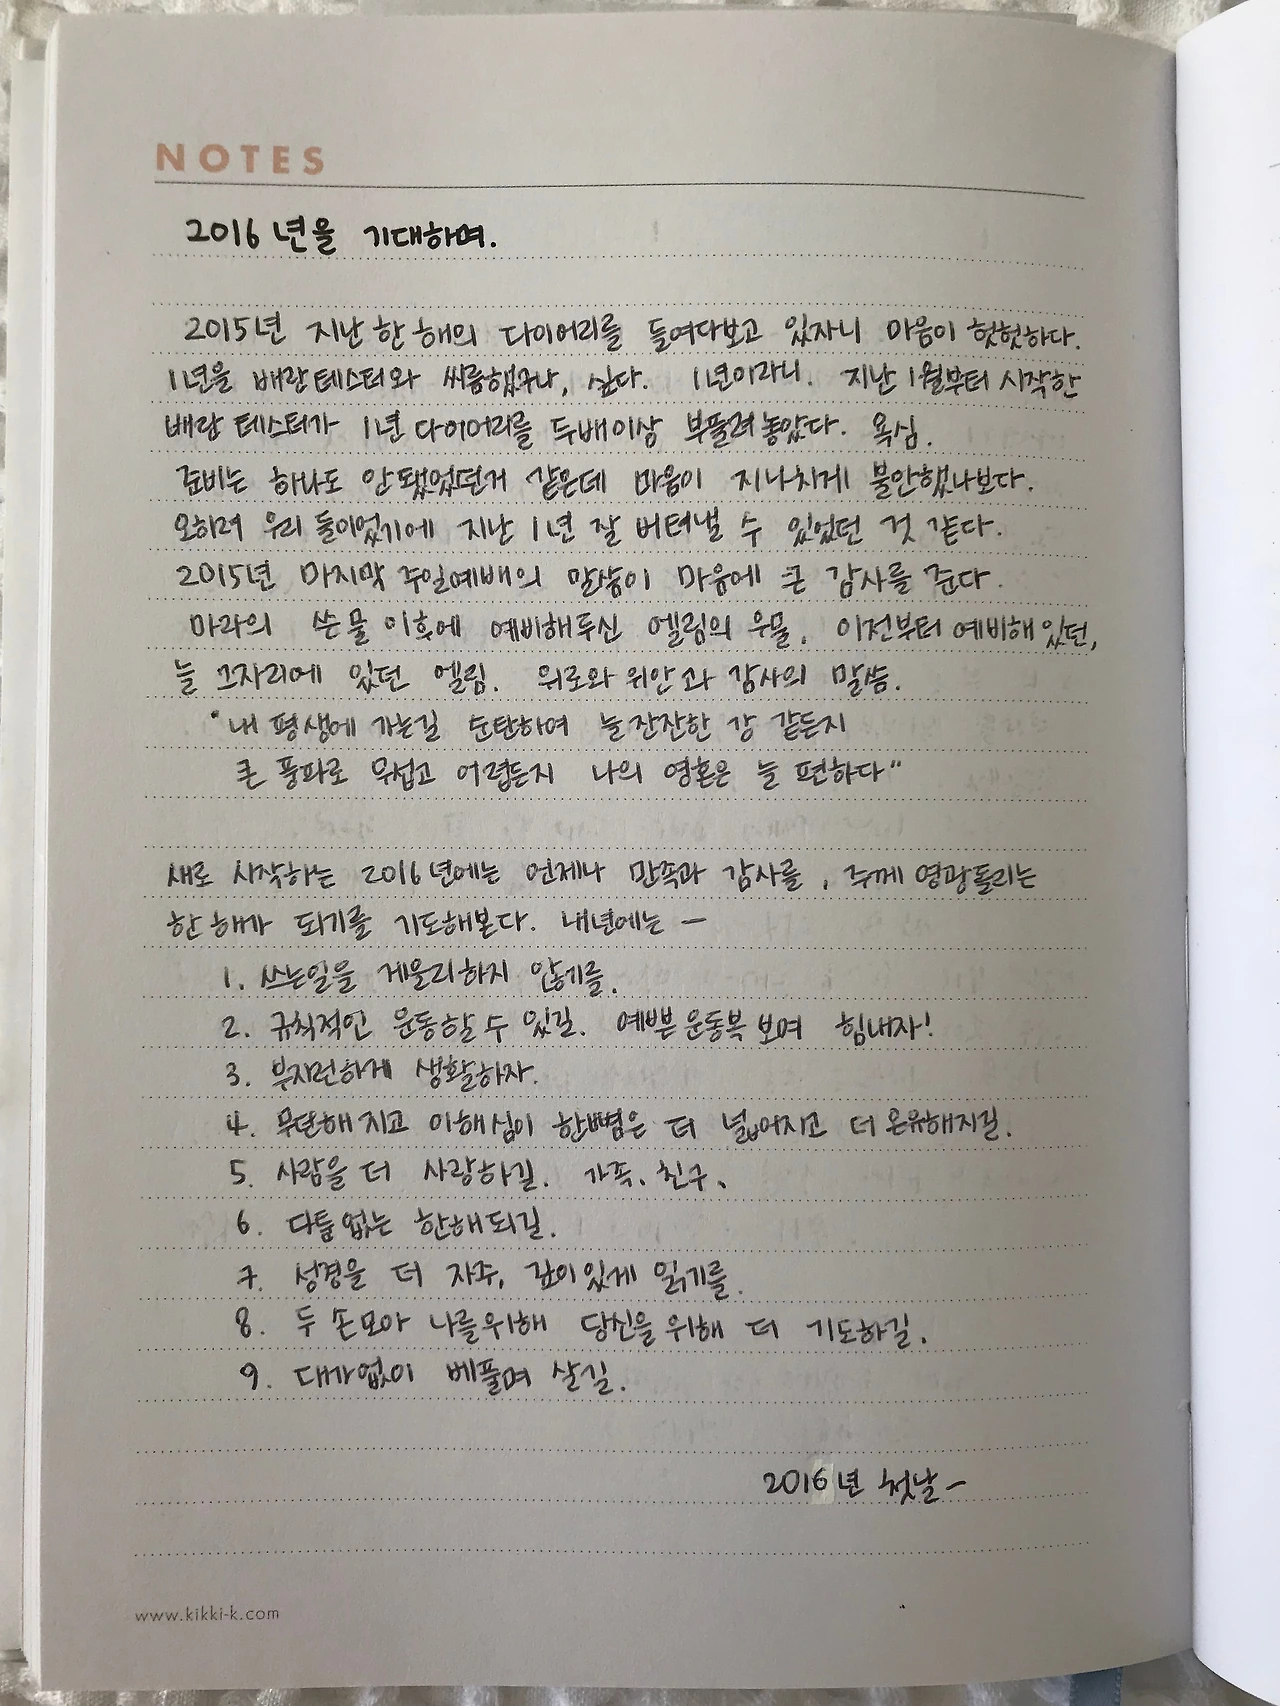 NOTES
2016년을 기대하며.
2015년 지난 한 해의 다이어리를 들여다보고 있자니 마음이 헛헛하다.
1년을 배란테스터와 씨름했구나, 싶다. 1년이라니. 지난 1월부터 시작한
배란 테스터가 1년 다이어리를 두배이상 부풀려놓았다. 욕심.
준비는 하나도 안됐었던거 같은데 마음이 지나치게 불안했나보다.
오히려 우리 둘이었기에 지난 1년 잘 버텨낼 수 있었던 것 같다.
2015년 마지막 주일예배의 말씀이 마음에 큰 감사를 준다.
마라의 쓴물 이후에 예비해두신 엘림의 우물. 이전부터 예비해 있던,
늘 그자리에 있던 엘림. 위로와 위안과 감사의 말씀.
"내 평생에 가는길 순탄하여 늘 잔잔한 강 같든지
큰 풍파로 무섭고 어렵든지 나의 영혼은 늘 편하다"
새로 시작하는 2016년에는 언제나 만족과 감사를, 주께 영광돌리는
한 해가 되기를 기도해본다. 내년에는 -
1. 쓰는일을 게을리하지 않기를.
2. 규칙적인 운동할 수 있길. 예쁜 운동복 보며 힘내자!
3. 부지런하게 생활하자.
4. 무던해지고 이해심이 한뼘은 더 넓어지고 더 온유해지길.
5. 사람을 더 사랑하길. 가족, 친구,
6. 다툼없는 한해되길.
7. 성경을 더 자주, 깊이있게 읽기를.
8. 두 손모아 나를위해 당신을 위해 더 기도하길.
9. 대가없이 베풀며 살길.
2016년 첫날 -
www.kikki-k.com